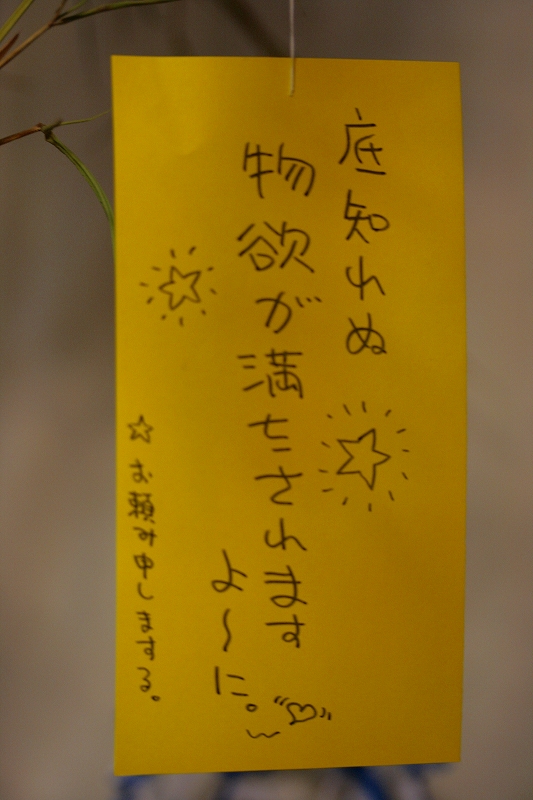 底知れぬ
物欲が満たされます
よ〜に。
☆お願み申しまする。